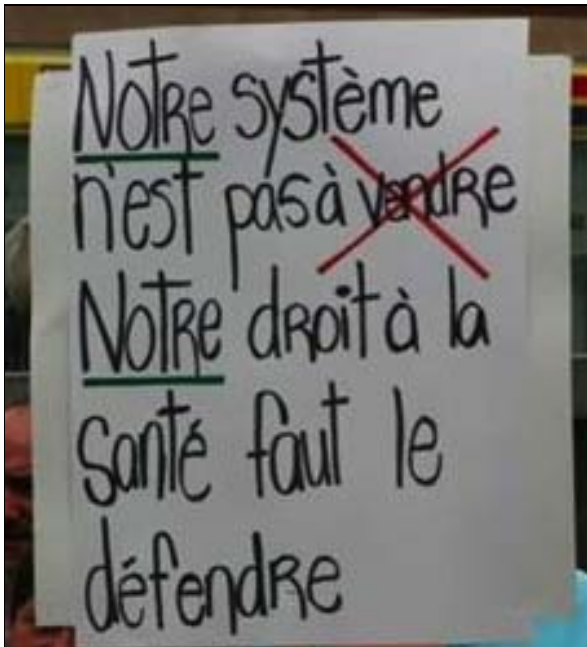 Notre système
n'est pas à vendre
Notre droit à la
santé faut le
défendre